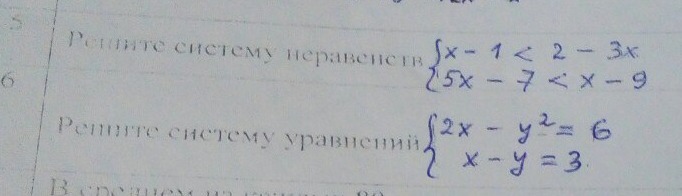 5
Решите систему неравенств { x - 1 < 2 - 3x
5x - 7 < x - 9
6
Решите систему уравнений { 2x - y² = 6
x - y = 3.
В среднем из